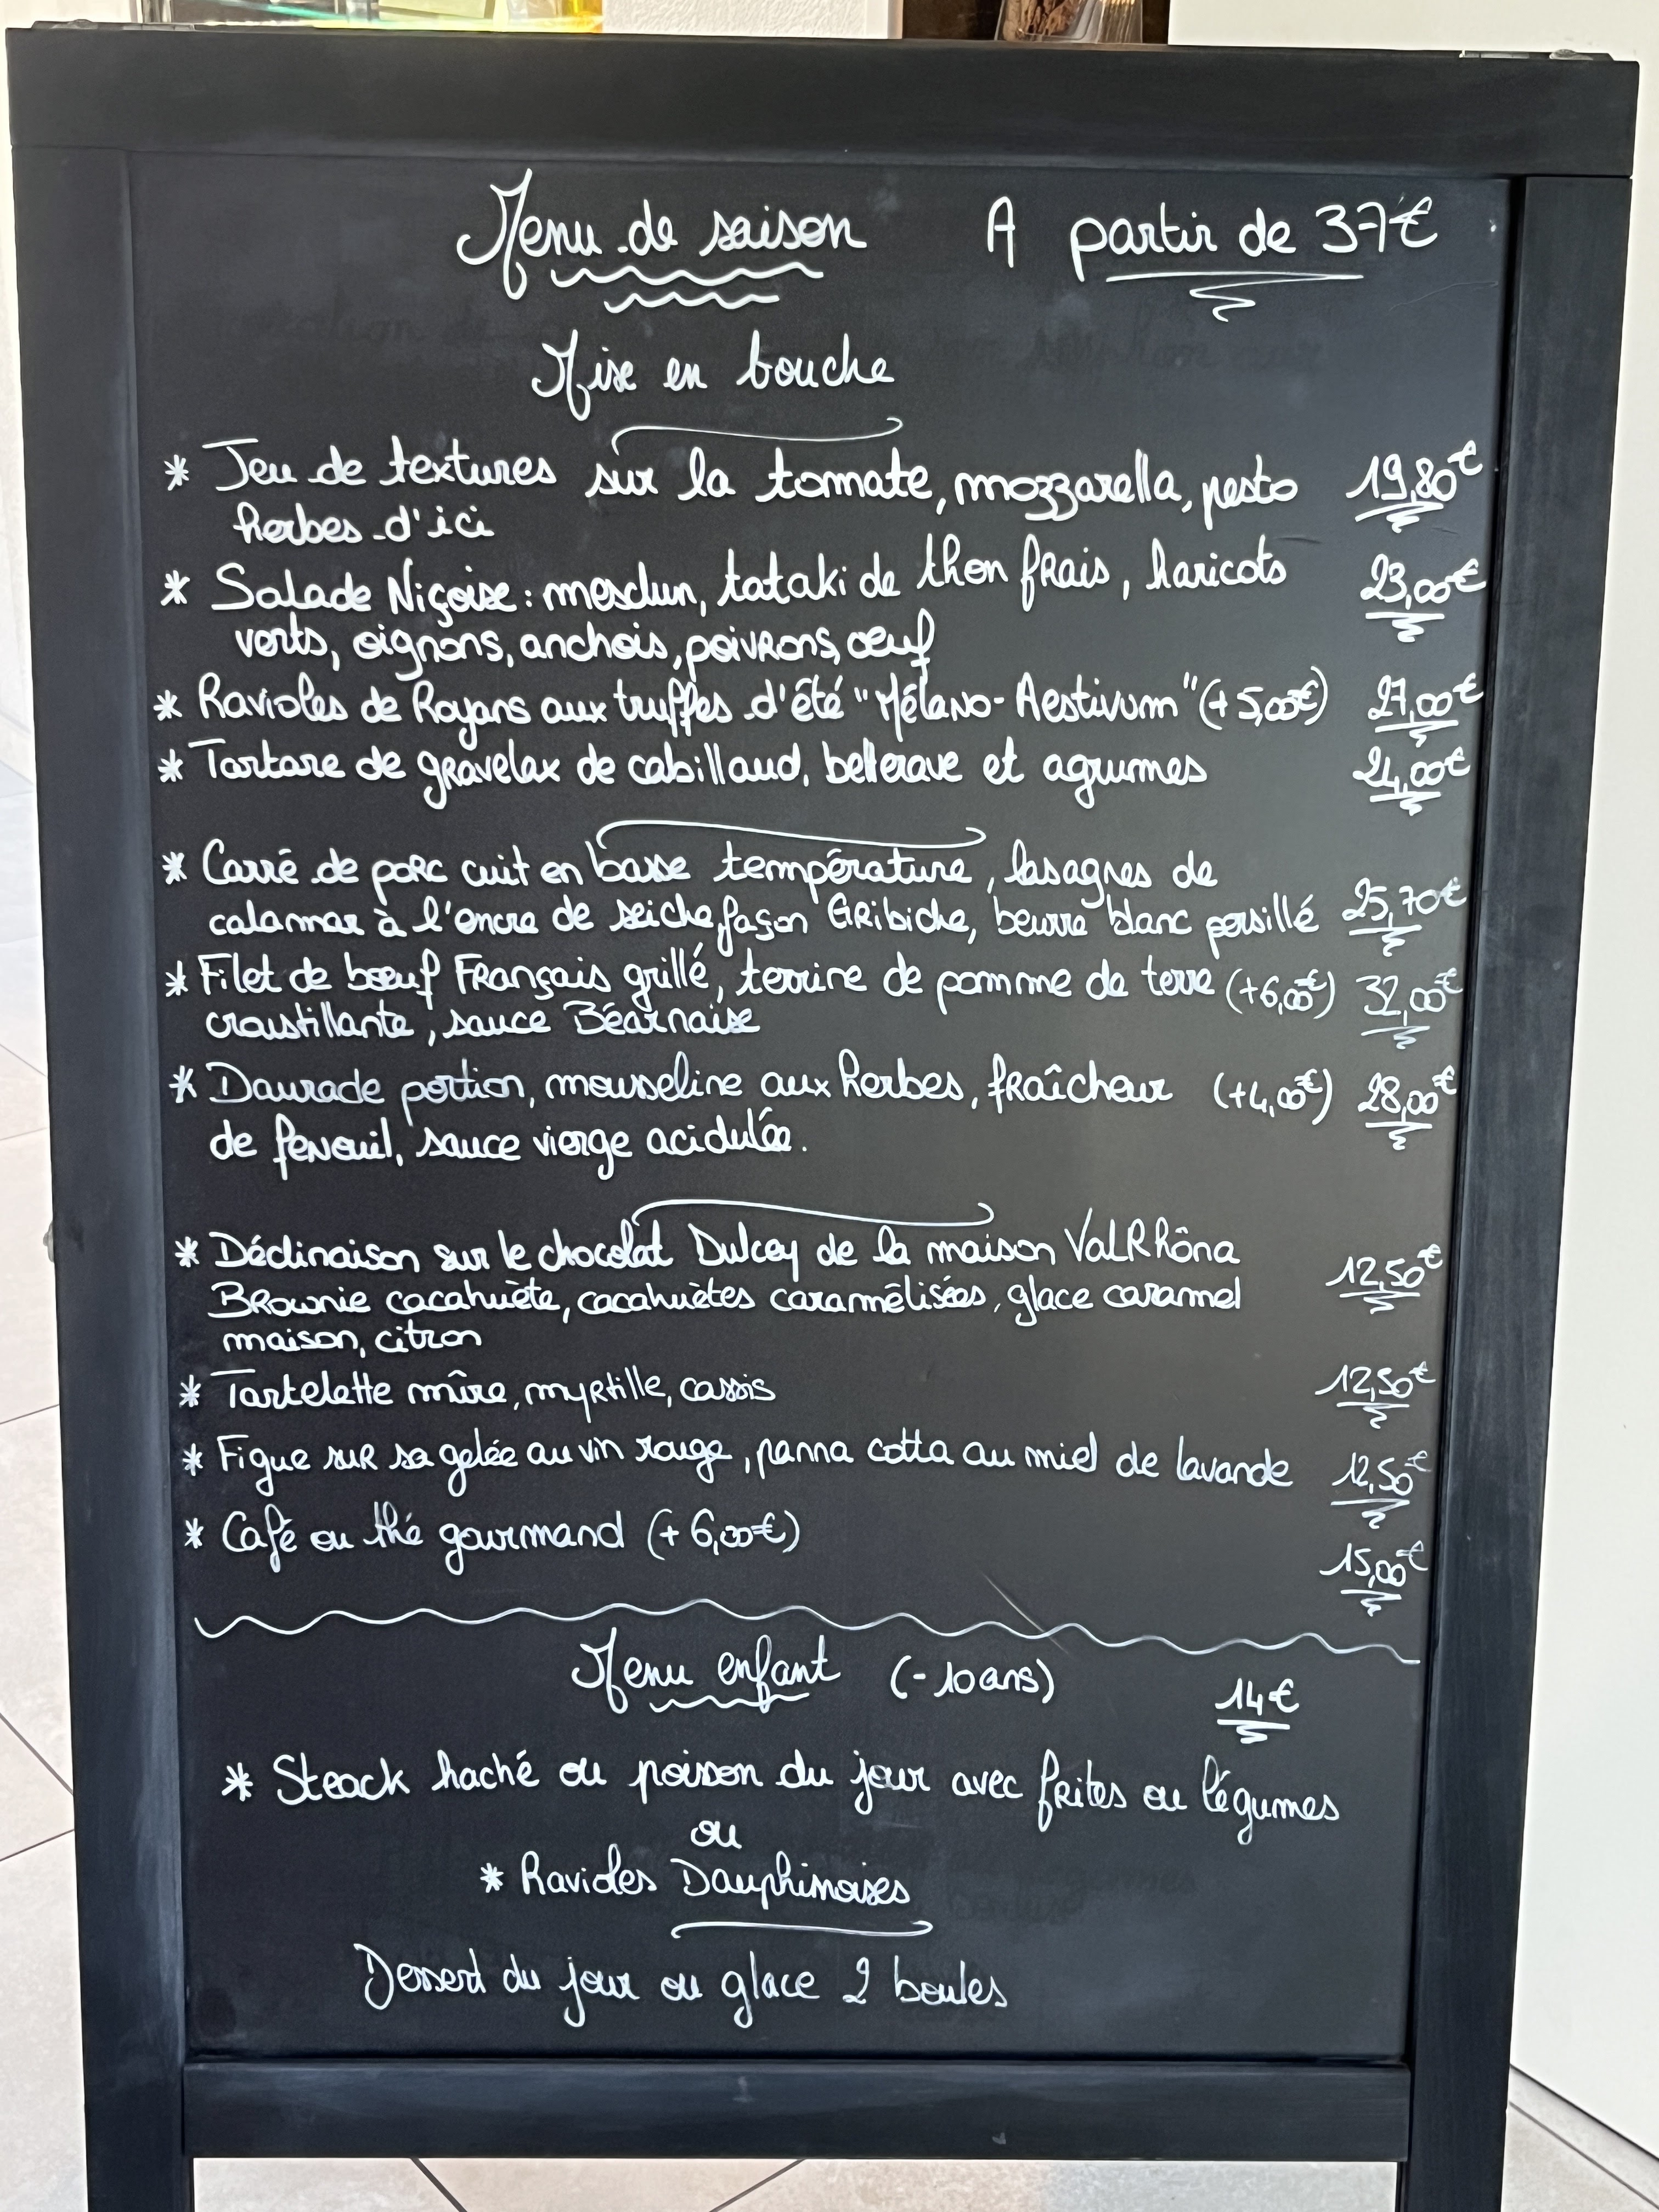 Menu de saison A partir de 37€
Mise en bouche
* Jeu de textures sur la tomate, mozzarella, pesto 19,80€
herbes d'ici
* Salade Niçoise : mesclun, tataki de thon frais, haricots 23,00€
verts, oignons, anchois, poivrons, œuf
* Ravioles de Royans aux truffes d'été "Mélano-Aestivum" (+5,00€) 27,00€
* Tartare de gravelax de cabillaud, betterave et agrumes 24,00€
* Carré de porc cuit en basse température, lasagnes de
calamar à l'encre de seiche façon Gribiche, beurre blanc persillé 25,70€
* Filet de bœuf Français grillé, terrine de pomme de terre (+6,00€) 32,00€
croustillante, sauce Béarnaise
* Daurade portion, mousseline aux herbes, fraîcheur (+4,00€) 28,00€
de fenouil, sauce vierge acidulée.
* Déclinaison sur le chocolat Dulcey de la maison ValRhôna 12,50€
Brownie cacahuète, cacahuètes caramélisées, glace caramel
maison, citron
* Tartelette mûre, myrtille, cassis 12,50€
* Figue sur sa gelée au vin rouge, panna cotta au miel de lavande 12,50€
* Café ou thé gourmand (+ 6,00€) 15,00€
Menu enfant (- 10 ans) 14€
* Steack haché ou poisson du jour avec frites ou légumes
ou
* Ravioles Dauphinoises
Dessert du jour ou glace 2 boules